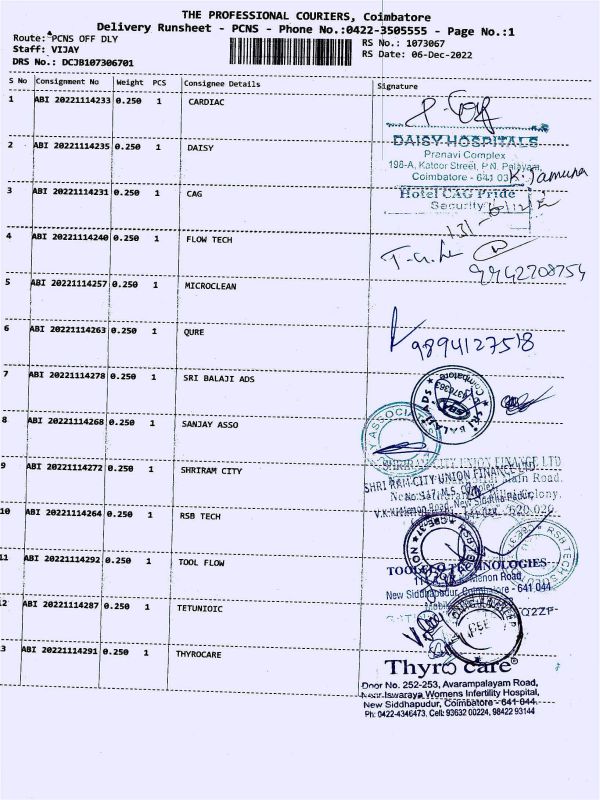 THE PROFESSIONAL COURIERS, Coimbatore
Delivery Runsheet - PCNS - Phone No.:0422-3505555 - Page No.:1
Route: PCNS OFF DLY
Staff: VIJAY
DRS No.: DCJB107306701
RS No.: 1073067
RS Date: 06-Dec-2022
S No Consignment No Weight PCS Consignee Details Signature
1 ABI 20221114233 0.250 1 CARDIAC
DAISY HOSPITALS
Pranavi Complex
198-A, Katoor Street, P.N. Palayam,
Coimbatore - 641 03
2 ABI 20221114235 0.250 1 DAISY
K. Jamuna
3 ABI 20221114231 0.250 1 CAG
Hotel CAG Pride
Security
4 ABI 20221114240 0.250 1 FLOW TECH
9942708754
5 ABI 20221114257 0.250 1 MICROCLEAN
6 ABI 20221114263 0.250 1 QURE
9894127518
7 ABI 20221114278 0.250 1 SRI BALAJI ADS
SRI BALAJI ADS
Coimbatore
8 ABI 20221114268 0.250 1 SANJAY ASSO
9 ABI 20221114272 0.250 1 SHRIRAM CITY
SHRIRAM CITY UNION FINANCE LTD
SHRIRAM CITY UNION FINANCE LTD
10 ABI 20221114264 0.250 1 RSB TECH
RSB TECH
11 ABI 20221114292 0.250 1 TOOL FLOW
TOOLFLO TECHNOLOGIES
New Siddhapudur, Coimbatore - 641 044
12 ABI 20221114287 0.250 1 TETUNIOIC
13 ABI 20221114291 0.250 1 THYROCARE
Thyrocare®
Door No. 252-253, Avarampalayam Road,
Near Iswaraya Womens Infertility Hospital,
New Siddhapudur, Coimbatore - 641 044.
Ph: 0422-4346473, Cell: 93632 00224, 98422 93144